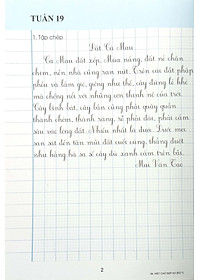 TUẦN 19
1. Tập chép
Đất Cà Mau
Cà Mau đất xốp. Mùa nắng, đất nẻ chân
chim, nền nhà cũng rạn nứt. Trên cái đất phập
phều và lắm gió, giông như thế, cây đứng lẻ khó
mà chống nổi với những cơn thịnh nộ của trời.
Cây bình bát, cây bần cũng phải quây quần
thành chòm, thành rặng, rễ phải dài, phải cắm
sâu vào lòng đất. Nhiều nhất là đước. Đước mọc
san sát đến tận mũi đất cuối cùng, thẳng đuột
như hàng hà sa số cây dù xanh cắm trên bãi.
Mai Văn Tạo
2